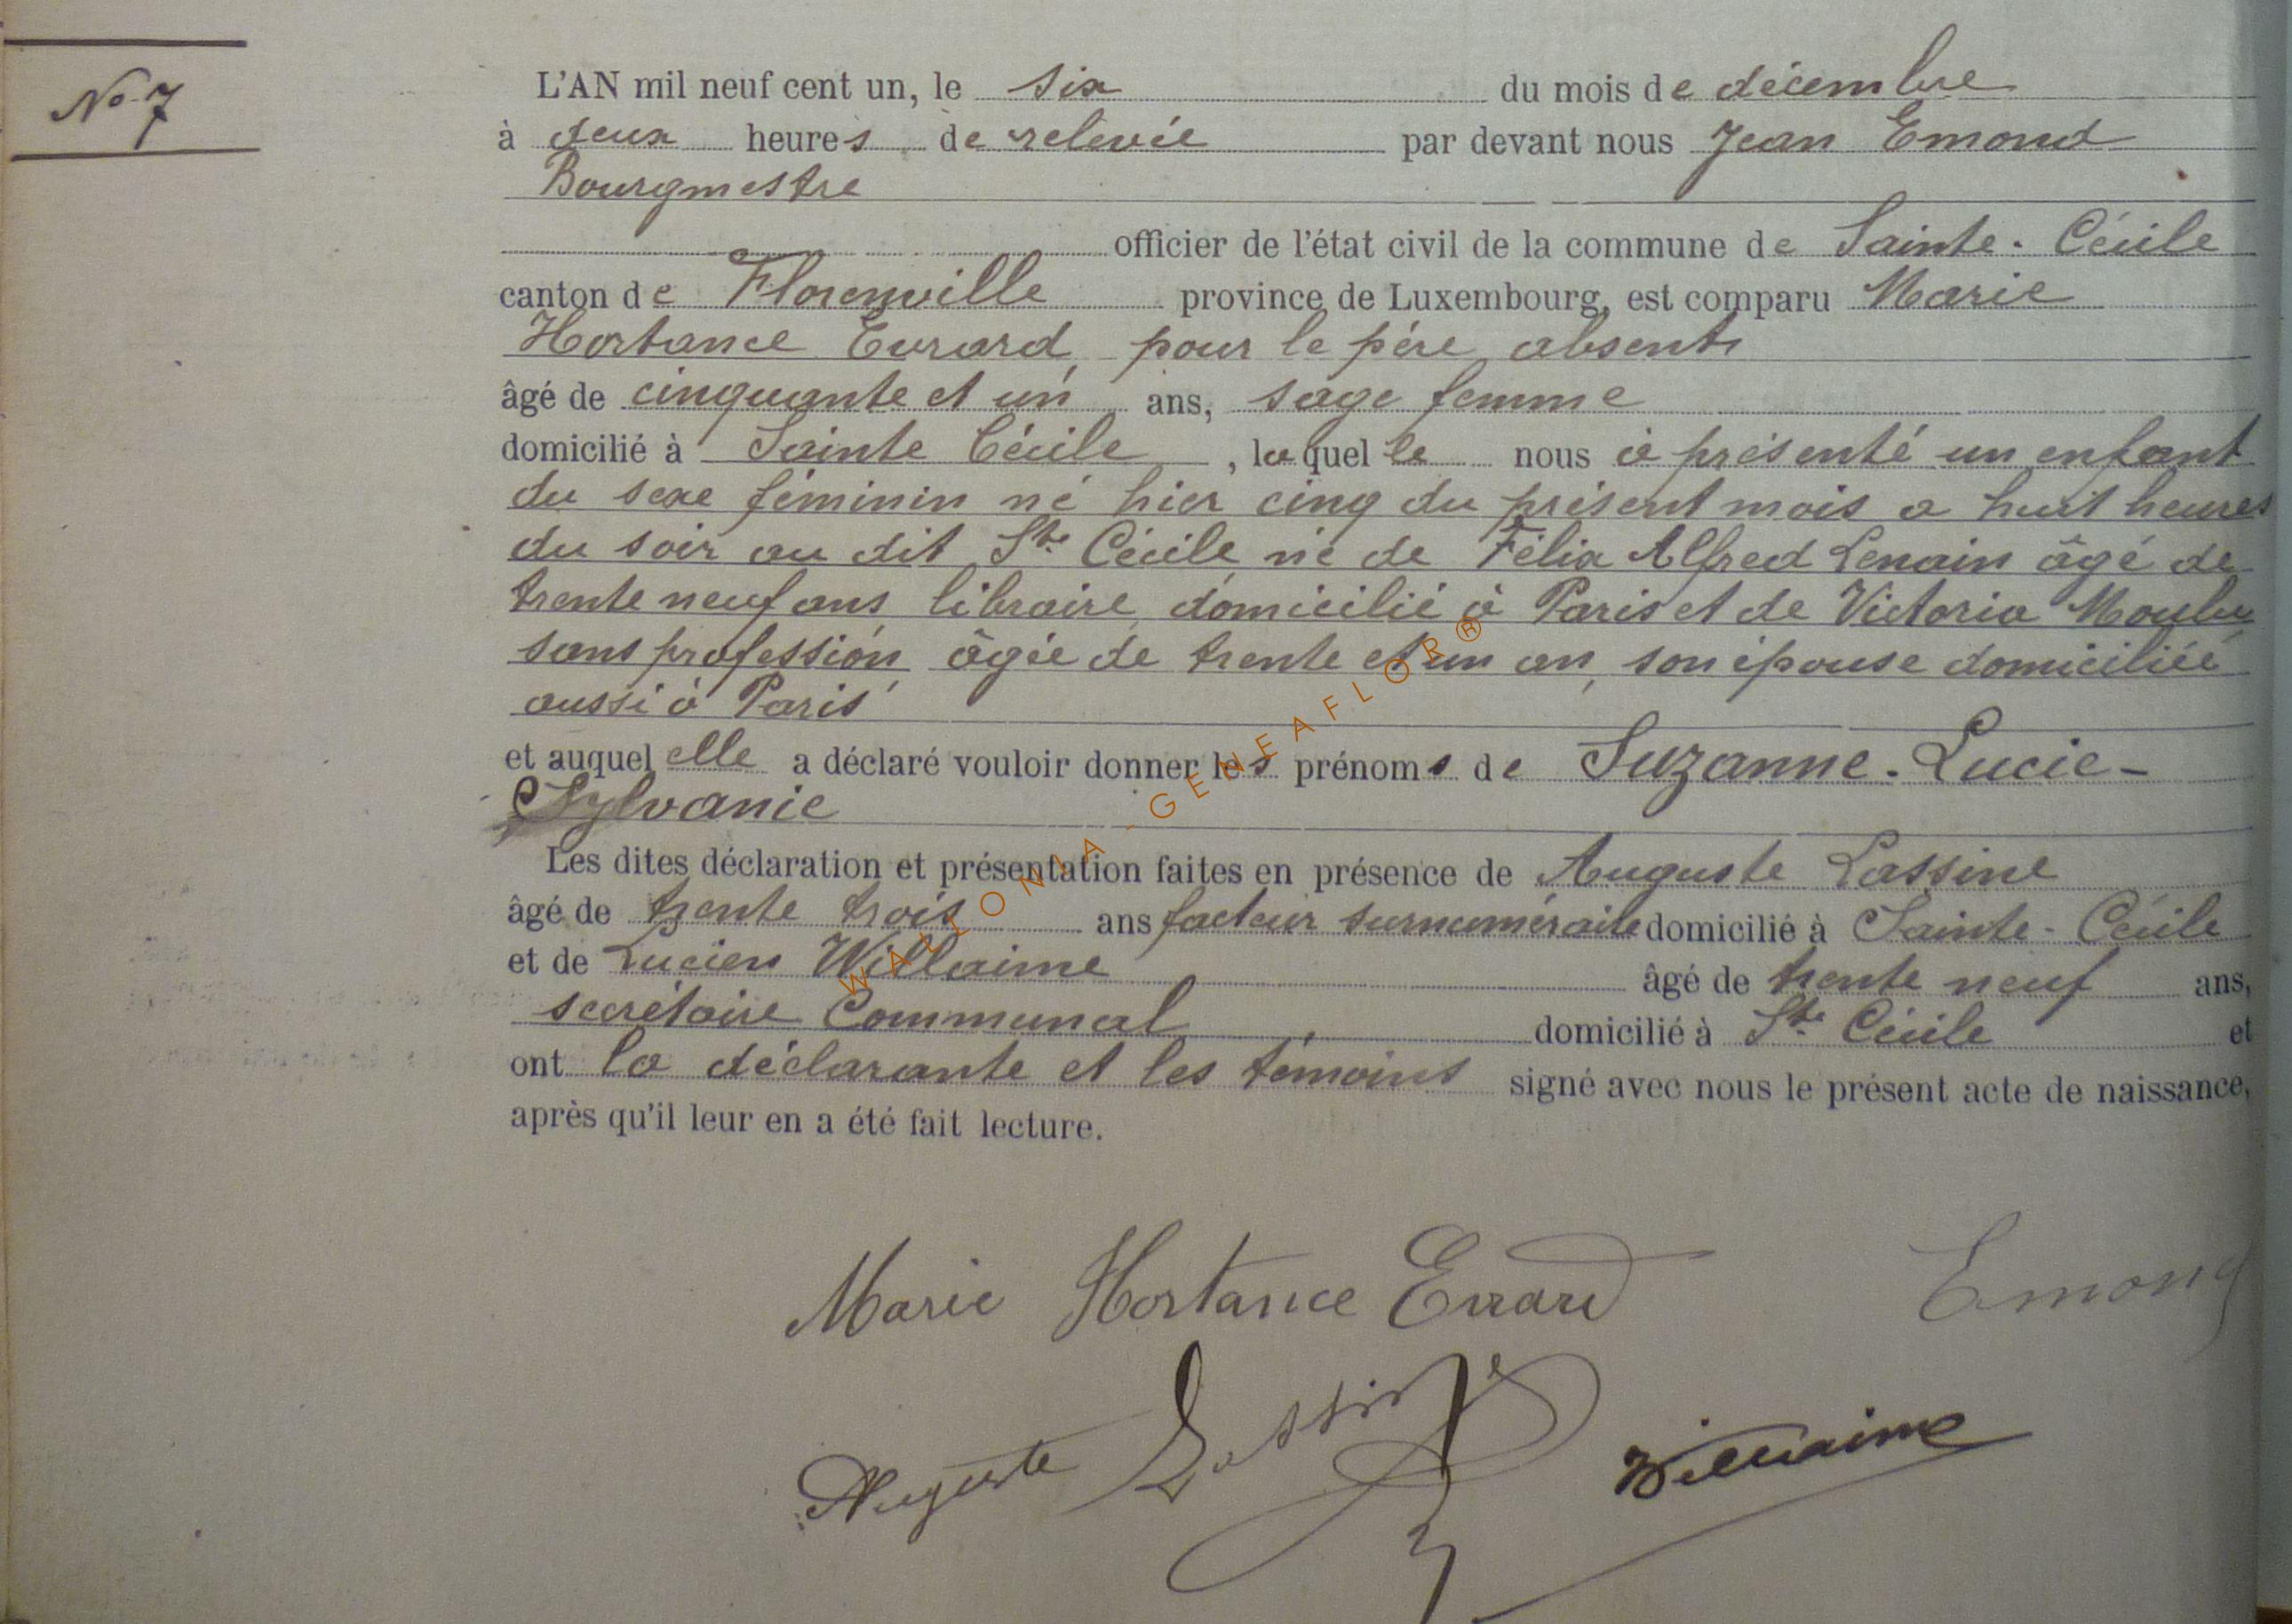 No 7
L'AN mil neuf cent un, le six du mois de décembre
à deux heures de relevée par devant nous Jean Emond
Bourgmestre
officier de l'état civil de la commune de Sainte-Cécile
canton de Florenville province de Luxembourg, est comparu Marie
Hortance Evrard, pour le père absent
âgé de cinquante et un ans, sage femme
domicilié à Sainte Cécile, laquelle nous a présenté un enfant
du sexe féminin né hier cinq du présent mois a huit heures
du soir au dit Ste Cécile, né de Félix Alfred Lenain âgé de
trente neuf ans, libraire, domicilié à Paris et de Victoria Moulu
sans profession, âgée de trente et un an, son épouse domiciliée
aussi à Paris
et auquel elle a déclaré vouloir donner les prénoms de Suzanne-Lucie-
Sylvanie
Les dites déclaration et présentation faites en présence de Auguste Lassine
âgé de trente trois ans facteur surnuméraire domicilié à Sainte-Cécile
et de Lucien Willaime âgé de trente neuf ans,
secrétaire Communal domicilié à Ste Cécile et
ont la déclarante et les témoins signé avec nous le présent acte de naissance,
après qu'il leur en a été fait lecture.
Marie Hortance Evrard Emond
Auguste Lassine Willaime
WALLONIA-GENEAFLOR®